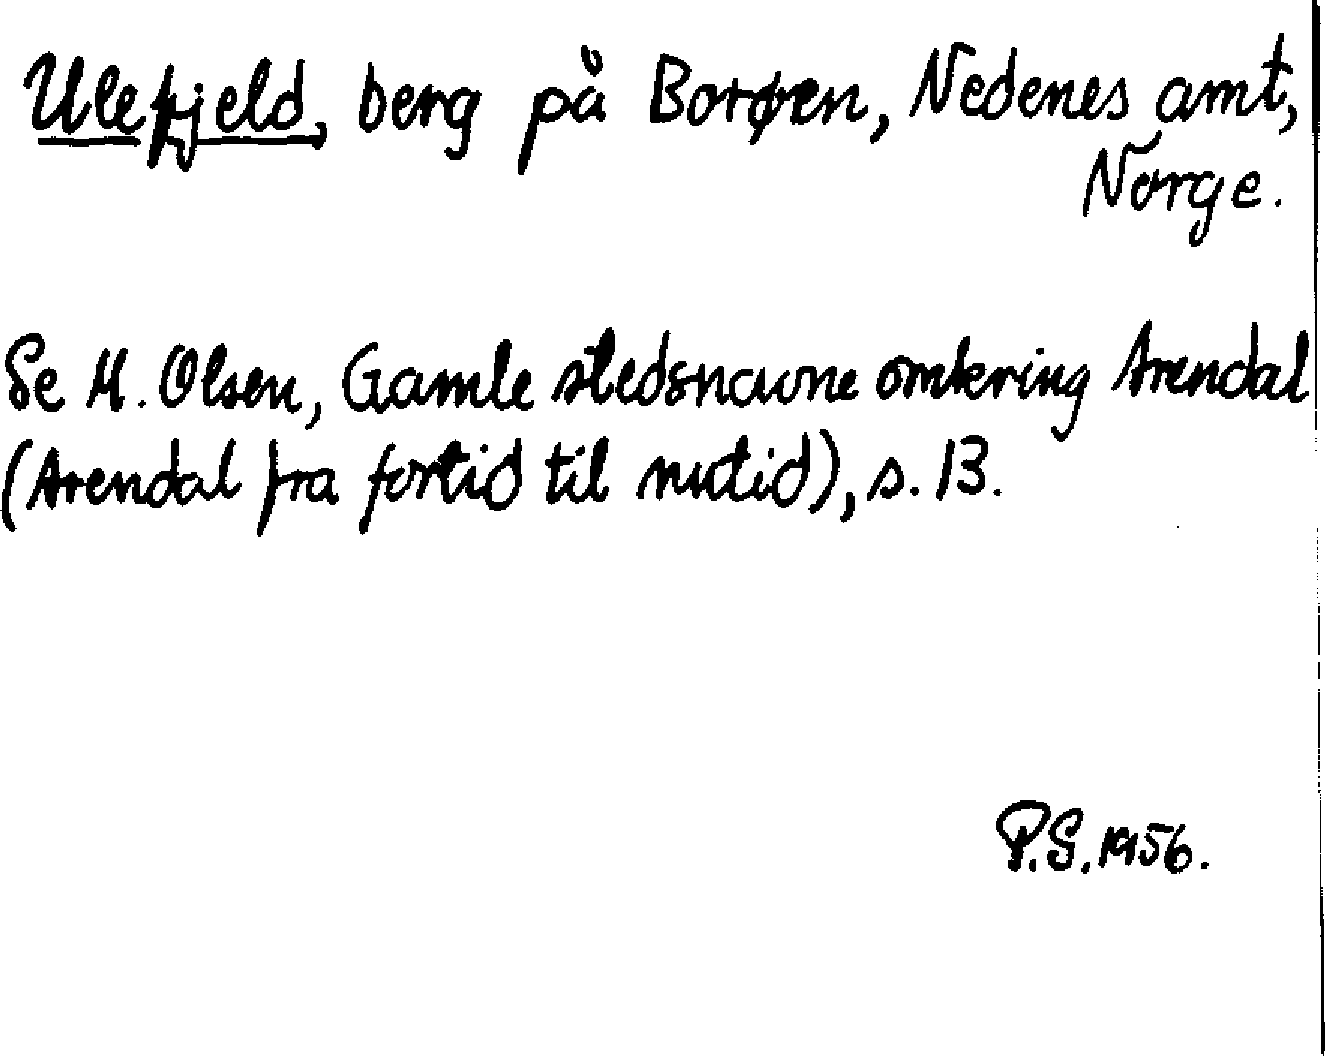 Ulefjeld, berg på Borøen, Nedenes amt,
Norge.
Se M. Olsen, Gamle stedsnavne omkring Arendal
(Arendal fra fortid til nutid), s. 13.
P.S. 1956.